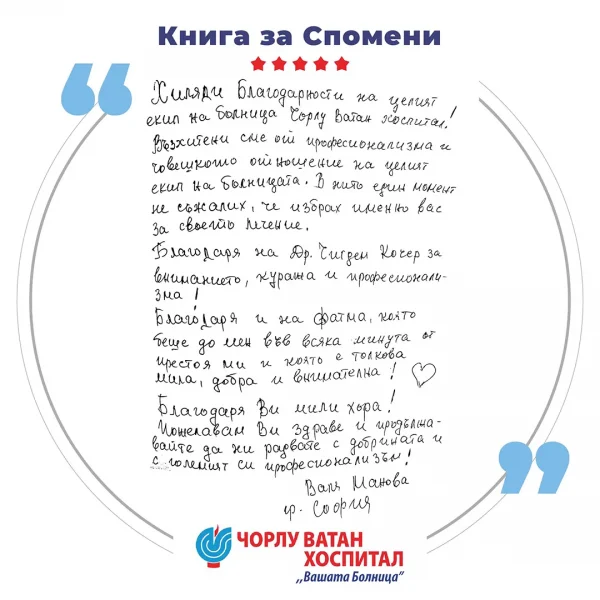 Книга за Спомени
Хиляди Благодарности на целият
екип на болница Чорлу Ватан хоспитал!
Възхитени сме от професионализма и
човешкото отношение на целият
екип на болницата. В нито един момент
не съжалих, че избрах именно вас
за своето лечение.
Благодаря на Др. Чигдем Кочер за
вниманието, куража и професионали-
зма!
Благодаря и на Фатма, която
беше до мен във всяка минута от
престоя ми и която е толкова
мила, добра и внимателна!
Благодаря Ви мили хора!
Пожелавам Ви здраве и продължа-
вайте да ни радвате с добрината и
с големият си професионализъм!
Валя Манова
гр. София
ЧОРЛУ ВАТАН
ХОСПИТАЛ
,,Вашата Болница"